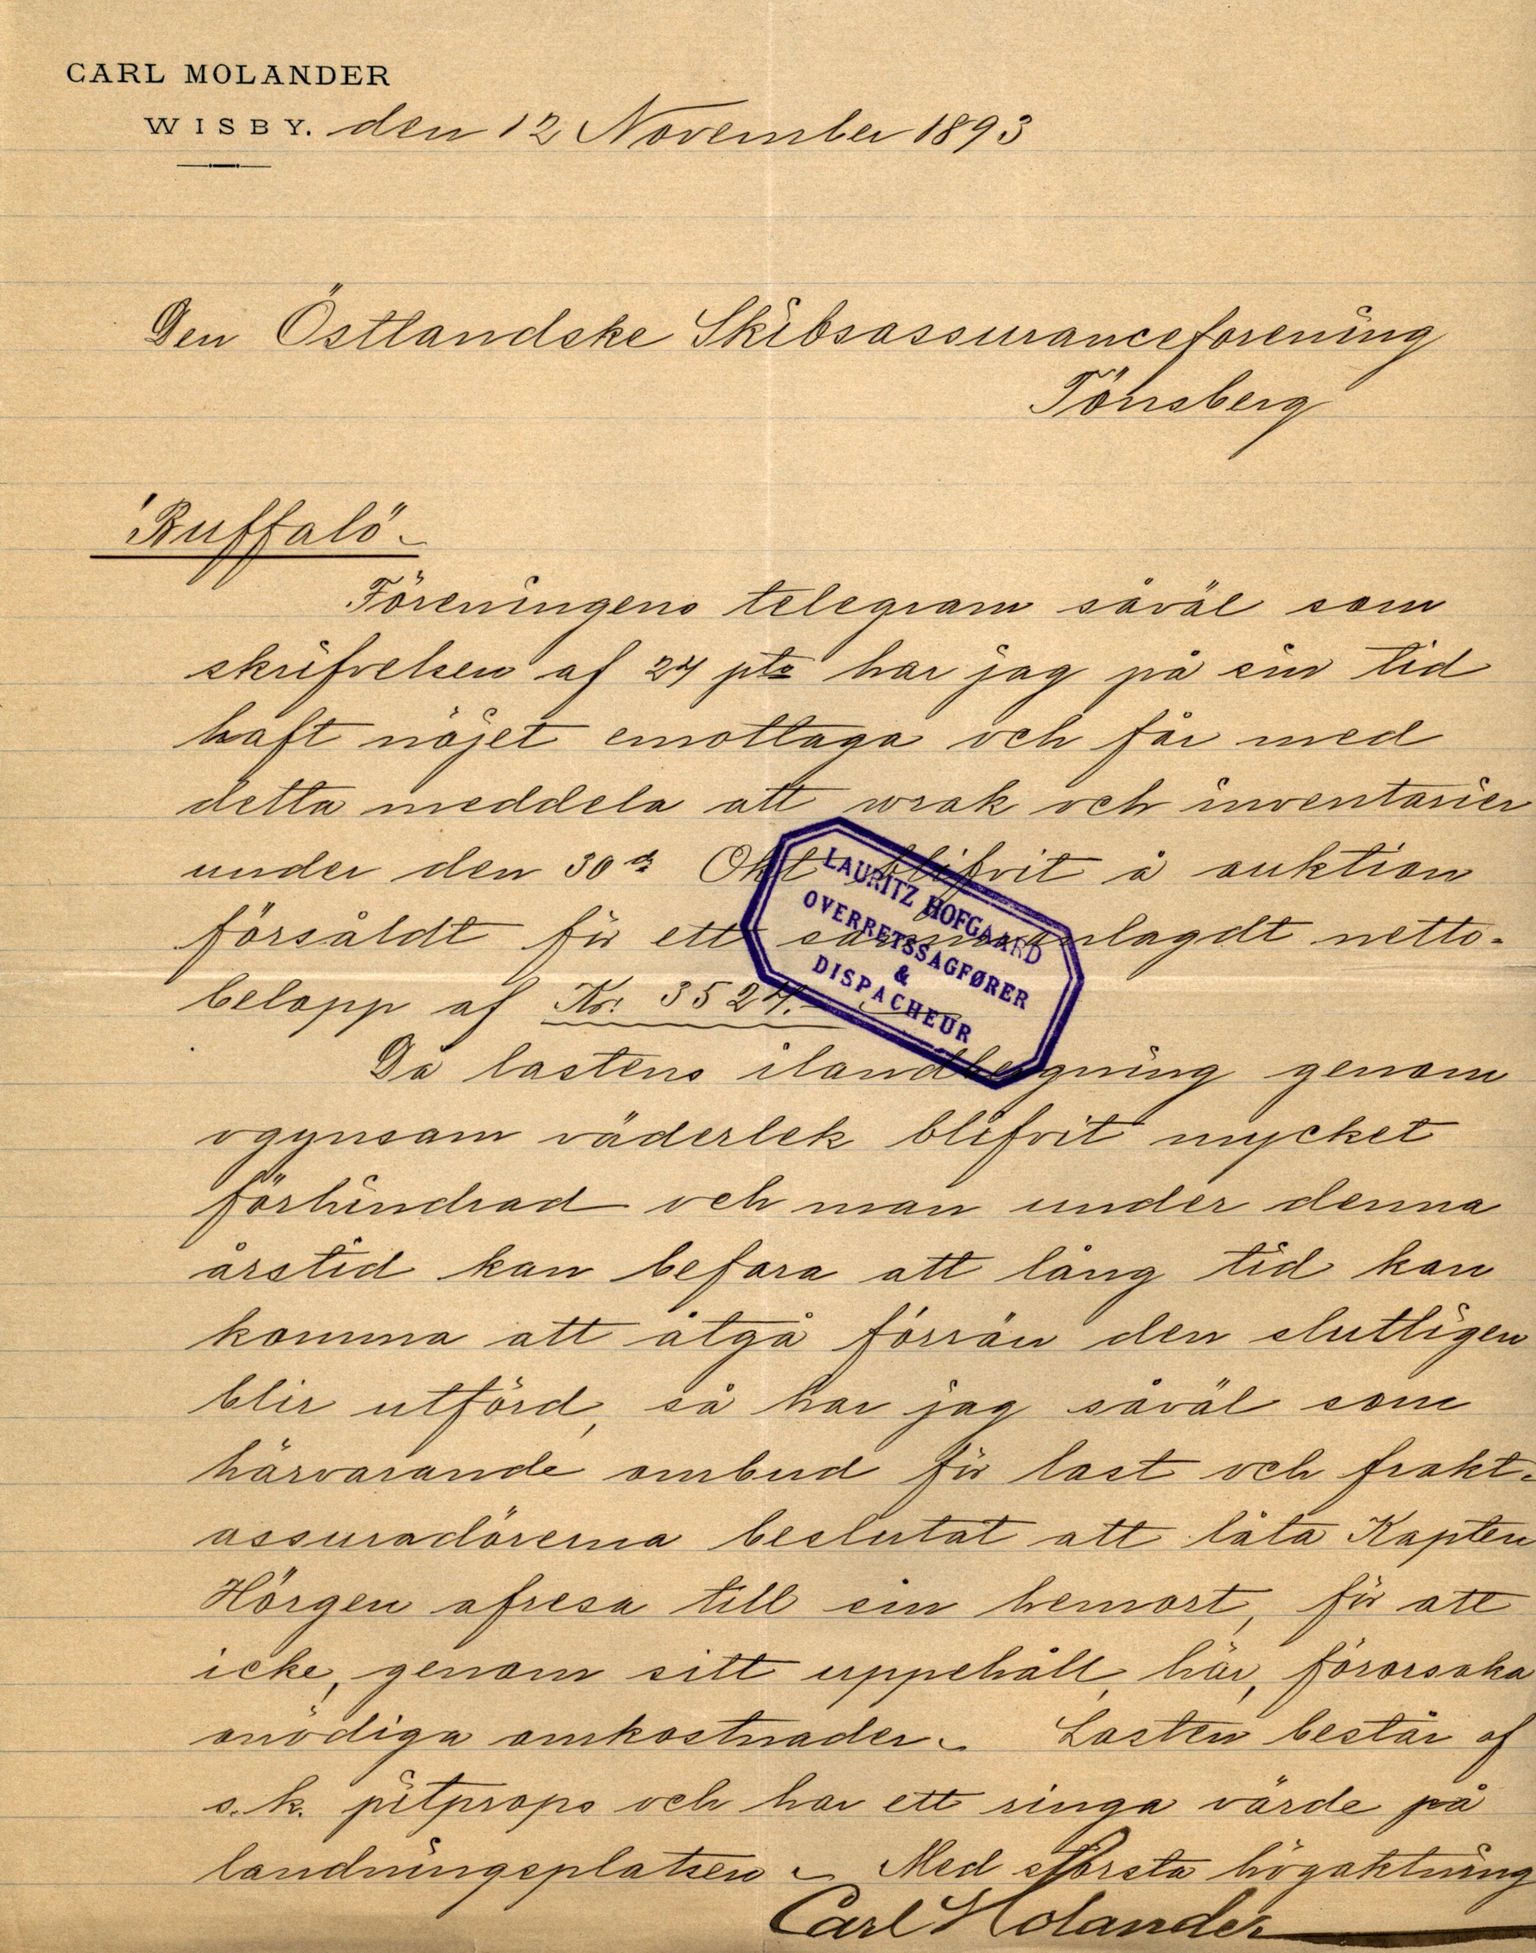 CARL MOLANDER
WISBY. den 12 November 1893
Den Östlandske Skibsassuranceforening
Tönsberg
"Buffalo"
Föreningens telegram såväl som
skrifvelsen af 24 pto har jag på sin tid
haft nöjet emottaga och får med
detta meddela att wrak och inventarier
under den 30de Okt blifvit å auktion
försåldt för ett sammanlagdt netto-
belopp af Kr. 3524.-
LAURITZ HOFGAARD
OVERRETSSAGFØRER
&
DISPACHEUR
Då lastens ilandbergning genom
ogynsam väderlek blifvit mycket
förhindrad och man under denna
årstid kan befara att lång tid kan
komma att åtgå förrän den slutligen
blir utförd, så har jag såväl som
härvarande ombud för last och frakt-
assuradörerna beslutat att låta Kapten
Hörgen afresa till sin hemort, för att
icke, genom sitt uppehåll, här, förorsaka
onödiga omkostnader. Lasten består af
s.k. pitprops och har ett ringa värde på
landningsplatsen. Med största högaktning
Carl Molander